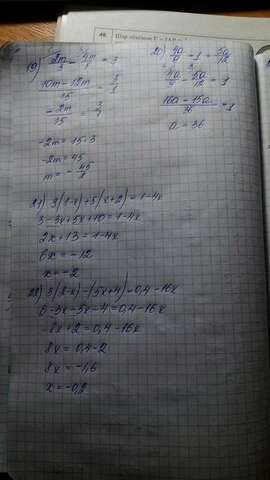 46.
19) 2m/3 - 4m/5 = 3
10m - 12m/15 = 3/1
-2m/15 = 3/1
-2m = 15·3
-2m = 45
m = -45/2
20) 4a/9 - 1 = 5a/12
4a/9 - 5a/12 = 1
16a - 15a/36 = 1
a = 36
21) 3(1-x)+5(x+2)=1-4x
3-3x+5x+10=1-4x
2x+13=1-4x
6x=-12
x=-2
22) 3(2-x)-(5x+4)=0,4-16x
6-3x-5x-4=0,4-16x
-8x+2=0,4-16x
8x=0,4-2
8x=-1,6
x=-0,2